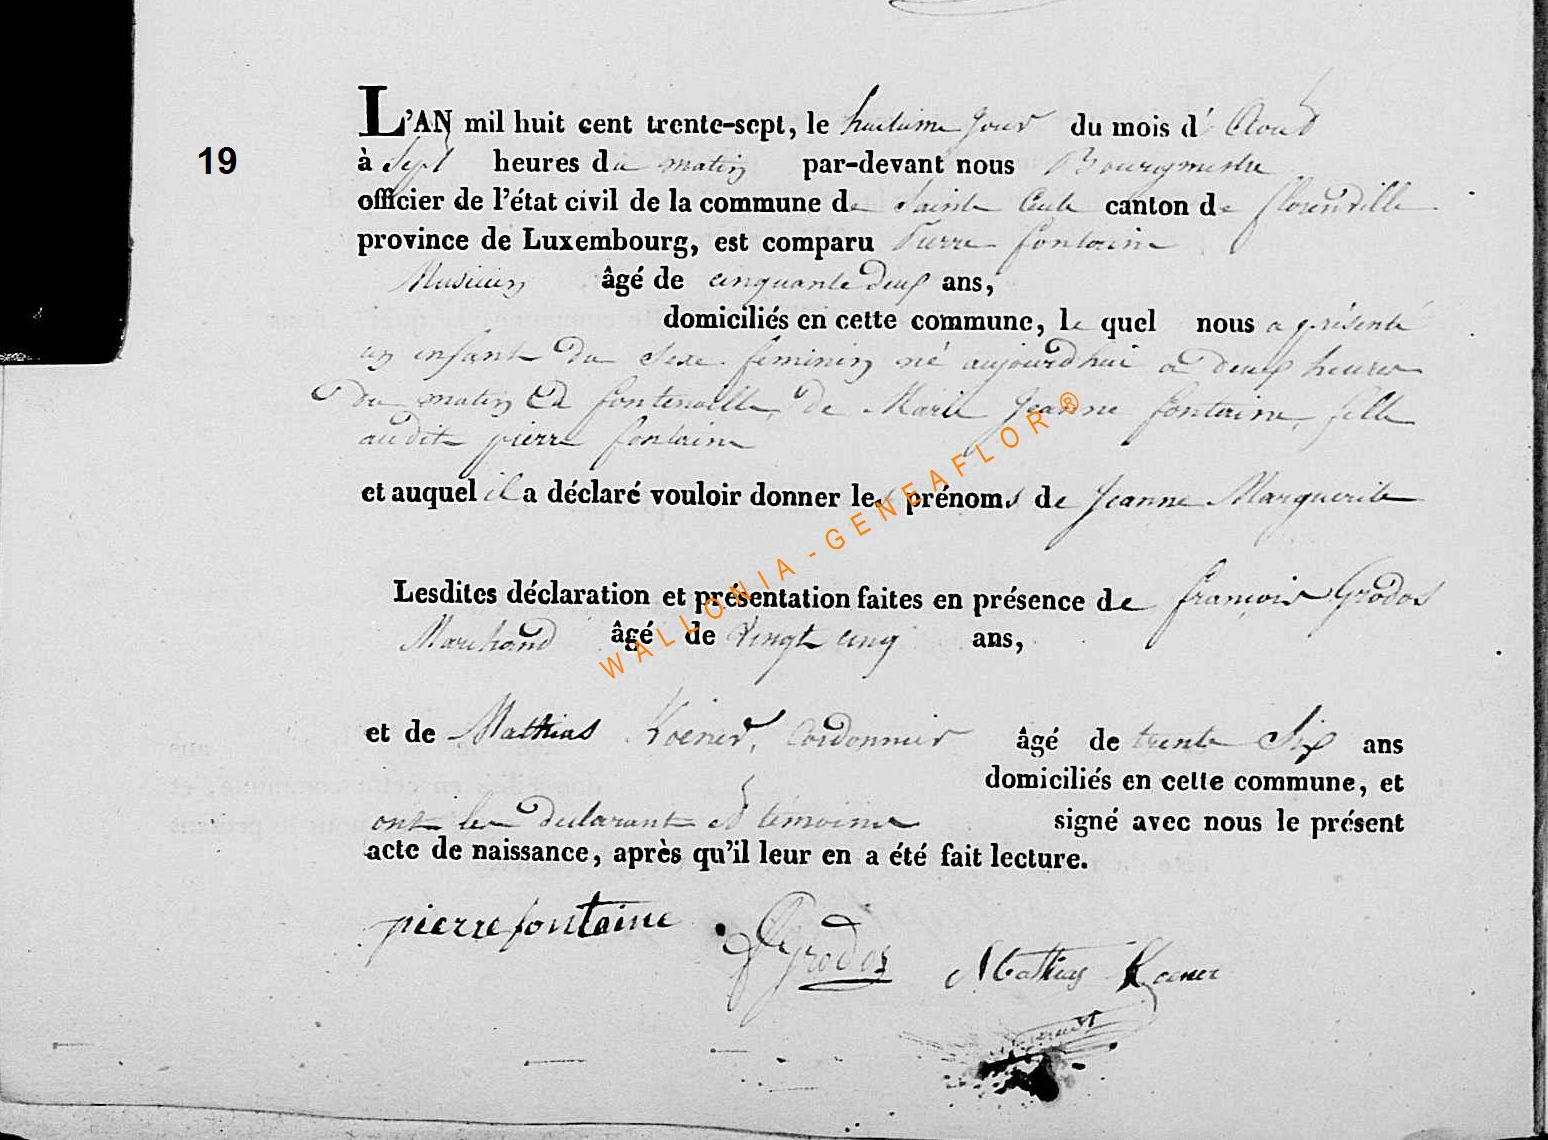 L'AN mil huit cent trente-sept, le huitieme Jour du mois d' Aout
19
à Sept heures du matin par-devant nous Bourgmestre
officier de l'état civil de la commune de Sainte Cecile canton de florenville
province de Luxembourg, est comparu Pierre fontaine
Musicien âgé de cinquante deux ans,
domiciliés en cette commune, le quel nous a présenté
un enfant du Sexe feminin né aujourd'hui a deux heures
du matin a fontenoille, de Marie Jeanne fontaine, fille
audit pierre fontaine
et auquel il a déclaré vouloir donner les prénoms de Jeanne Marguerite
WALLONIA - GENEAFLOR ®
Lesdites déclaration et présentation faites en présence de francois Grodos
Marchand âgé de Vingt cinq ans,
et de Mathias Koener, Cordonnier âgé de trente Six ans
domiciliés en cette commune, et
ont les declarant et témoins signé avec nous le présent
acte de naissance, après qu'il leur en a été fait lecture.
pierre fontaine Grodos Mathias Koener